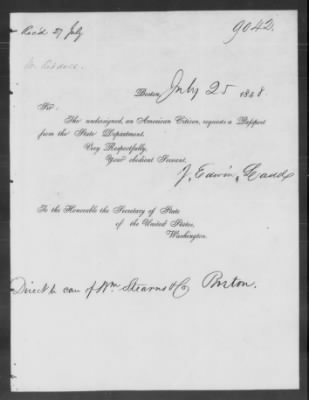 Rec'd 27 July
9042.
Boston, July 25 1848
Sir:
The undersigned, an American Citizen, requests a Passport
from the State Department.
Very Respectfully,
Your obedient Servant,
J. Edwin
To the Honorable the Secretary of State
of the United States,
Washington.
Direct to care of Wm. Stearns & Co Boston.